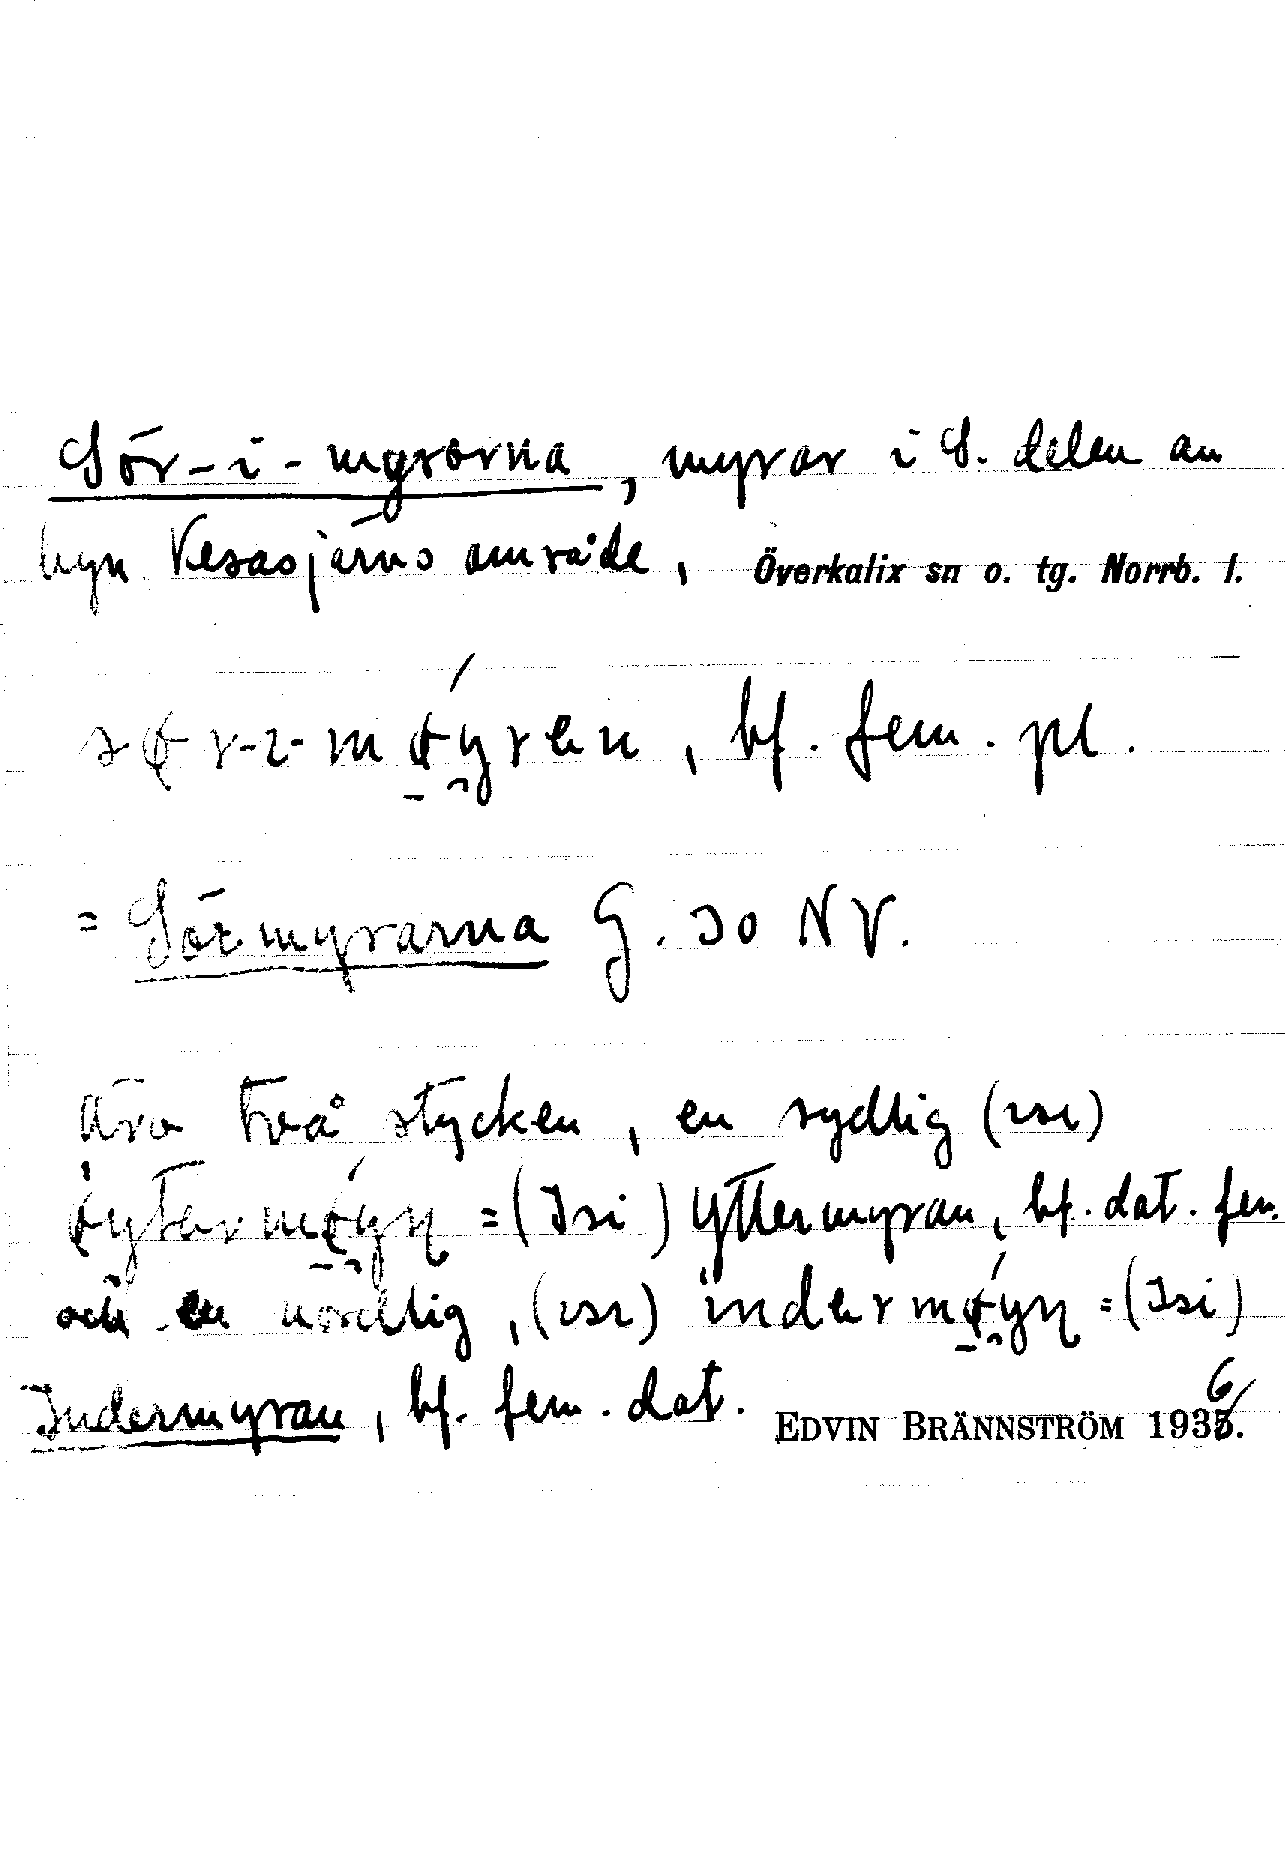 Sör-i-myrorna, myrar i S. delen av
byn Vesasjärvs område, Överkalix sn o. tg. Norrb. l.
sør-ɪ-møyren, bf. fem. pl.
= Sörmyrarna G. 30 NV.
äro två stycken, en sydlig (ɪsɪ)
øytermøyn = (Isi) Yttermyran, bf. dat. fem.
och en nördlig, (ɪsɪ) indermøyn = (Isi)
Indermyran, bf. fem. dat.
EDVIN BRÄNNSTRÖM 1936.